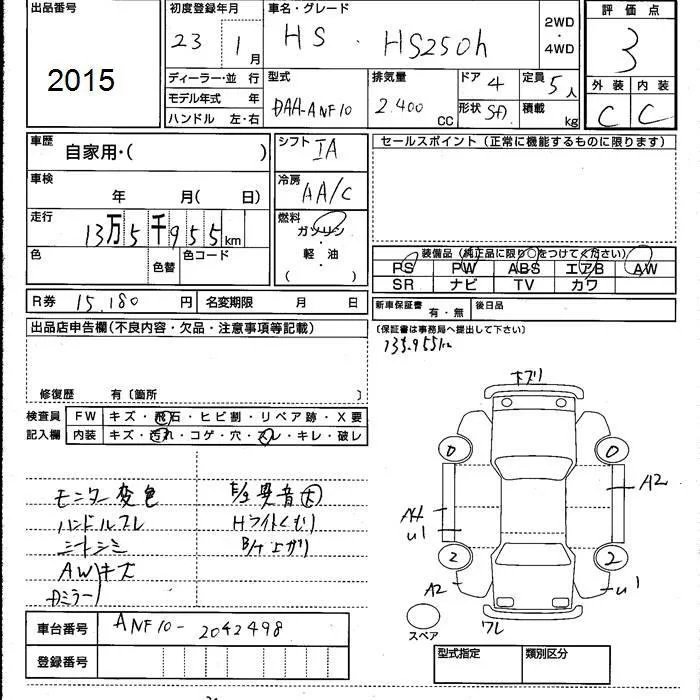 出品番号
2015
初度登録年月
23年1月
車名・グレード
HS・HS250h
2WD・4WD
評価点
3
外装 内装
C C
ディーラー・並行
モデル年式 年
ハンドル 左・右
型式
DAA-ANF10
排気量
2.400cc
ドア 4
形状 SD
定員 5人
積載 kg
車歴
自家用・( )
車検
年 月( 日)
走行
13万5千955km
色
色替
色コード
シフト IA
冷房
AA/C
燃料
ガソリン・軽・油
( )
セールスポイント(正常に機能するものに限ります)
装備品(純正品に限り○をつけてください)
PS PW ABS エアB AW
SR ナビ TV カワ
R券 15,180円 名変期限 月 日
新車保証書 有・無 後日品
(保証書は事務局へ提出して下さい)
135,955km
出品店申告欄(不良内容・欠品・注意事項等記載)
修復歴 有〔箇所 〕
検査員
記入欄
FW キズ・飛石・ヒビ割・リペア跡・X要
内装 キズ・汚れ・コゲ・穴・スレ・キレ・破レ
モニター変色
ハンドルスレ
シートシミ
AWキズ
Dミラー
E/g異音大
Hライトくもり
B/T上がり
キズリ
0 0
A2
A4
U1
2 2
A2
U1
ワレ
スペア
車台番号 ANF10-2042498
登録番号
型式指定 類別区分